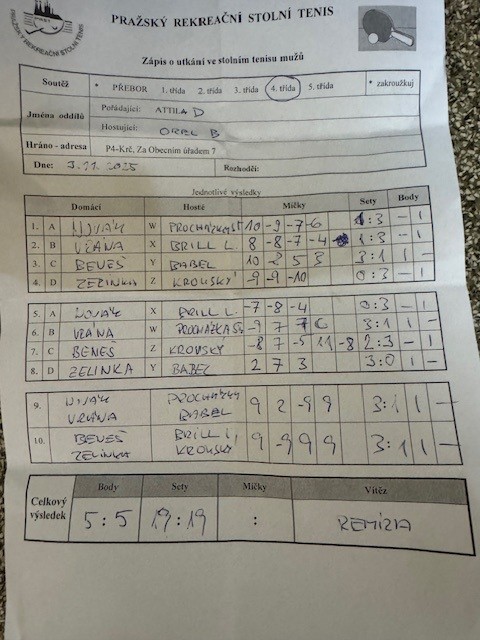 PRAŽSKÝ REKREAČNÍ STOLNÍ TENIS
PRAŽSKÝ REKREAČNÍ STOLNÍ TENIS
Zápis o utkání ve stolním tenisu mužů
Soutěž • PŘEBOR 1. třída 2. třída 3. třída 4. třída 5. třída • zakroužkuj
Jména oddílů Pořádající: ATTILA D
Hostující: OREL B
Hráno - adresa P4-Krč, Za Obecním úřadem 7
Dne: 3.11.2025 Rozhodčí:
Jednotlivé výsledky
Domácí Hosté Míčky Sety Body
1. A NOVÁK W PROCHÁZKA ST 10 -9 -7 -6 1:3 - 1
2. B VRÁNA X BRILL L 8 -8 -7 -4 1:3 - 1
3. C BENEŠ Y BABEL 10 -8 5 3 3:1 1 -
4. D ZELINKA Z KROUSKÝ -9 -9 -10 0:3 - 1
5. A NOVÁK X BRILL L. -7 -8 -4 0:3 - 1
6. B VRÁNA W PROCHÁZKA ST -9 7 7 6 3:1 1 -
7. C BENEŠ Z KROUSKÝ -8 7 -5 11 -8 2:3 - 1
8. D ZELINKA Y BABEL 2 7 3 3:0 1 -
9. NOVÁK PROCHÁZKA
VRÁNA BABEL 9 2 -9 9 3:1 1 -
10. BENEŠ BRILL L,
ZELINKA KROUSKÝ 9 -9 9 9 3:1 1 -
Celkový výsledek Body Sety Míčky Vítěz
5:5 19:19 : REMÍZA